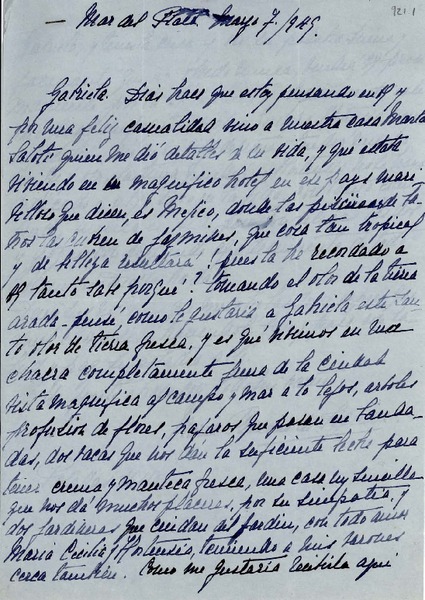 921 1
— Mar del Plata Mayo 7/949.
Gabriela. Dias hace que estoy pensando en Ud y
por una feliz casualidad vino a nuestra casa Marta
Saloti quien me dió detalles de su vida, y qué estaba
viviendo en un magnifico hotel en ese pays mari
villoso que dicen, es Mejico, donde las piscinas de
las cubren de jazmines, que cosa tan tropical
y de belleza
pues la he recordado a
Ud tanto sabe porqué? tomando el olor de la tierra
arada - pensé como le gustaria a Gabriela este san
to olor de tierra fresca, y es qué vivimos en una
chacra completamente fuera de la ciudad
vista magnifica al campo y mar a lo lejos, arboles
profusión de flores, pajaros que pasan en banda
das, dos vacas que nos dan la suficiente leche para
tener crema y manteca fresca, una casa muy sencilla
que nos da muchos placeres, por su simpatia, y
dos jardineras que cuidan del jardin, con todo amor
Maria Cecilia y Hortensia, teniendo a mis varones
cerca tambien. Como me gustaria recibirla aqui